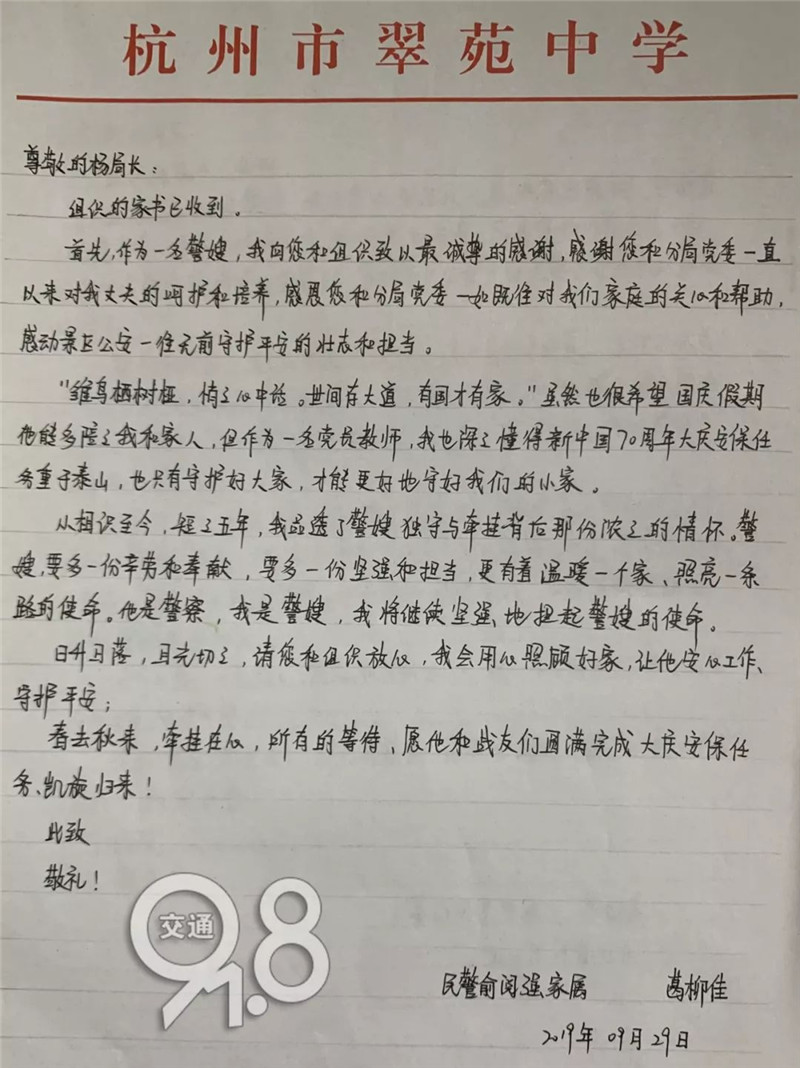 杭州市翠苑中学
尊敬的杨局长：
组织的家书已收到。
首先，作为一名警嫂，我向您和组织致以最诚挚的感谢，感谢您和分局党委一直
以来对我丈夫的呵护和培养，感恩您和分局党委一如既往对我们家庭的关心和帮助，
感动景区公安一往无前守护平安的壮志和担当。
"雏鸟栖树桠，悄々心中话。世间存大道，有国才有家。"虽然也很希望国庆假期
他能多陪々我和家人，但作为一名党员教师，我也深々懂得新中国70周年大庆安保任
务重于泰山，也只有守护好大家，才能更好地守好我们的小家。
从相识至今，短々五年，我品透了警嫂独守与牵挂背后那份浓々的情怀。警
嫂，要多一份辛劳和奉献，要多一份坚强和担当，更有着温暖一个家、照亮一条
路的使命。他是警察，我是警嫂，我将继续坚强地担起警嫂的使命。
日升月落，目光切々，请您和组织放心，我会用心照顾好家，让他安心工作、
守护平安；
春去秋来，牵挂在心，所有的等待、愿他和战友们圆满完成大庆安保任
务、凯旋归来！
此致
敬礼！
交通
91.8
民警俞闵强家属 葛柳佳
2019年09月29日